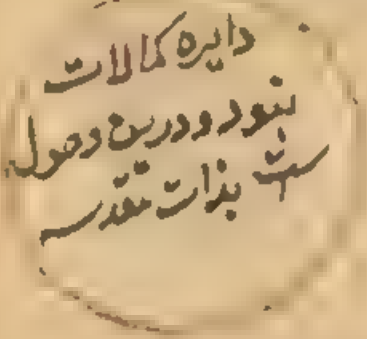 دایره کمالات
بنود و درین وصول
ست بذات تقدس